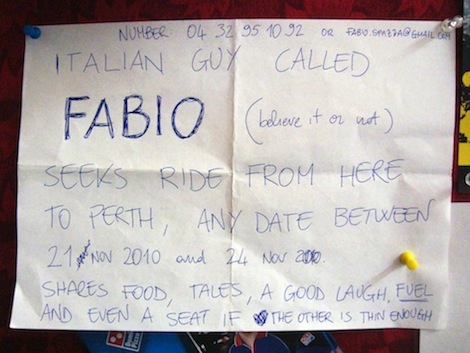 NUMBER: 04 32 95 10 92 OR FABIO.SPAZZA@GMAIL.COM
ITALIAN GUY CALLED
FABIO (believe it or not)
SEEKS RIDE FROM HERE
TO PERTH, ANY DATE BETWEEN
21 NOV 2010 and 24 NOV 2010.
SHARES FOOD, TALES, A GOOD LAUGH, FUEL
AND EVEN A SEAT IF THE OTHER IS THIN ENOUGH